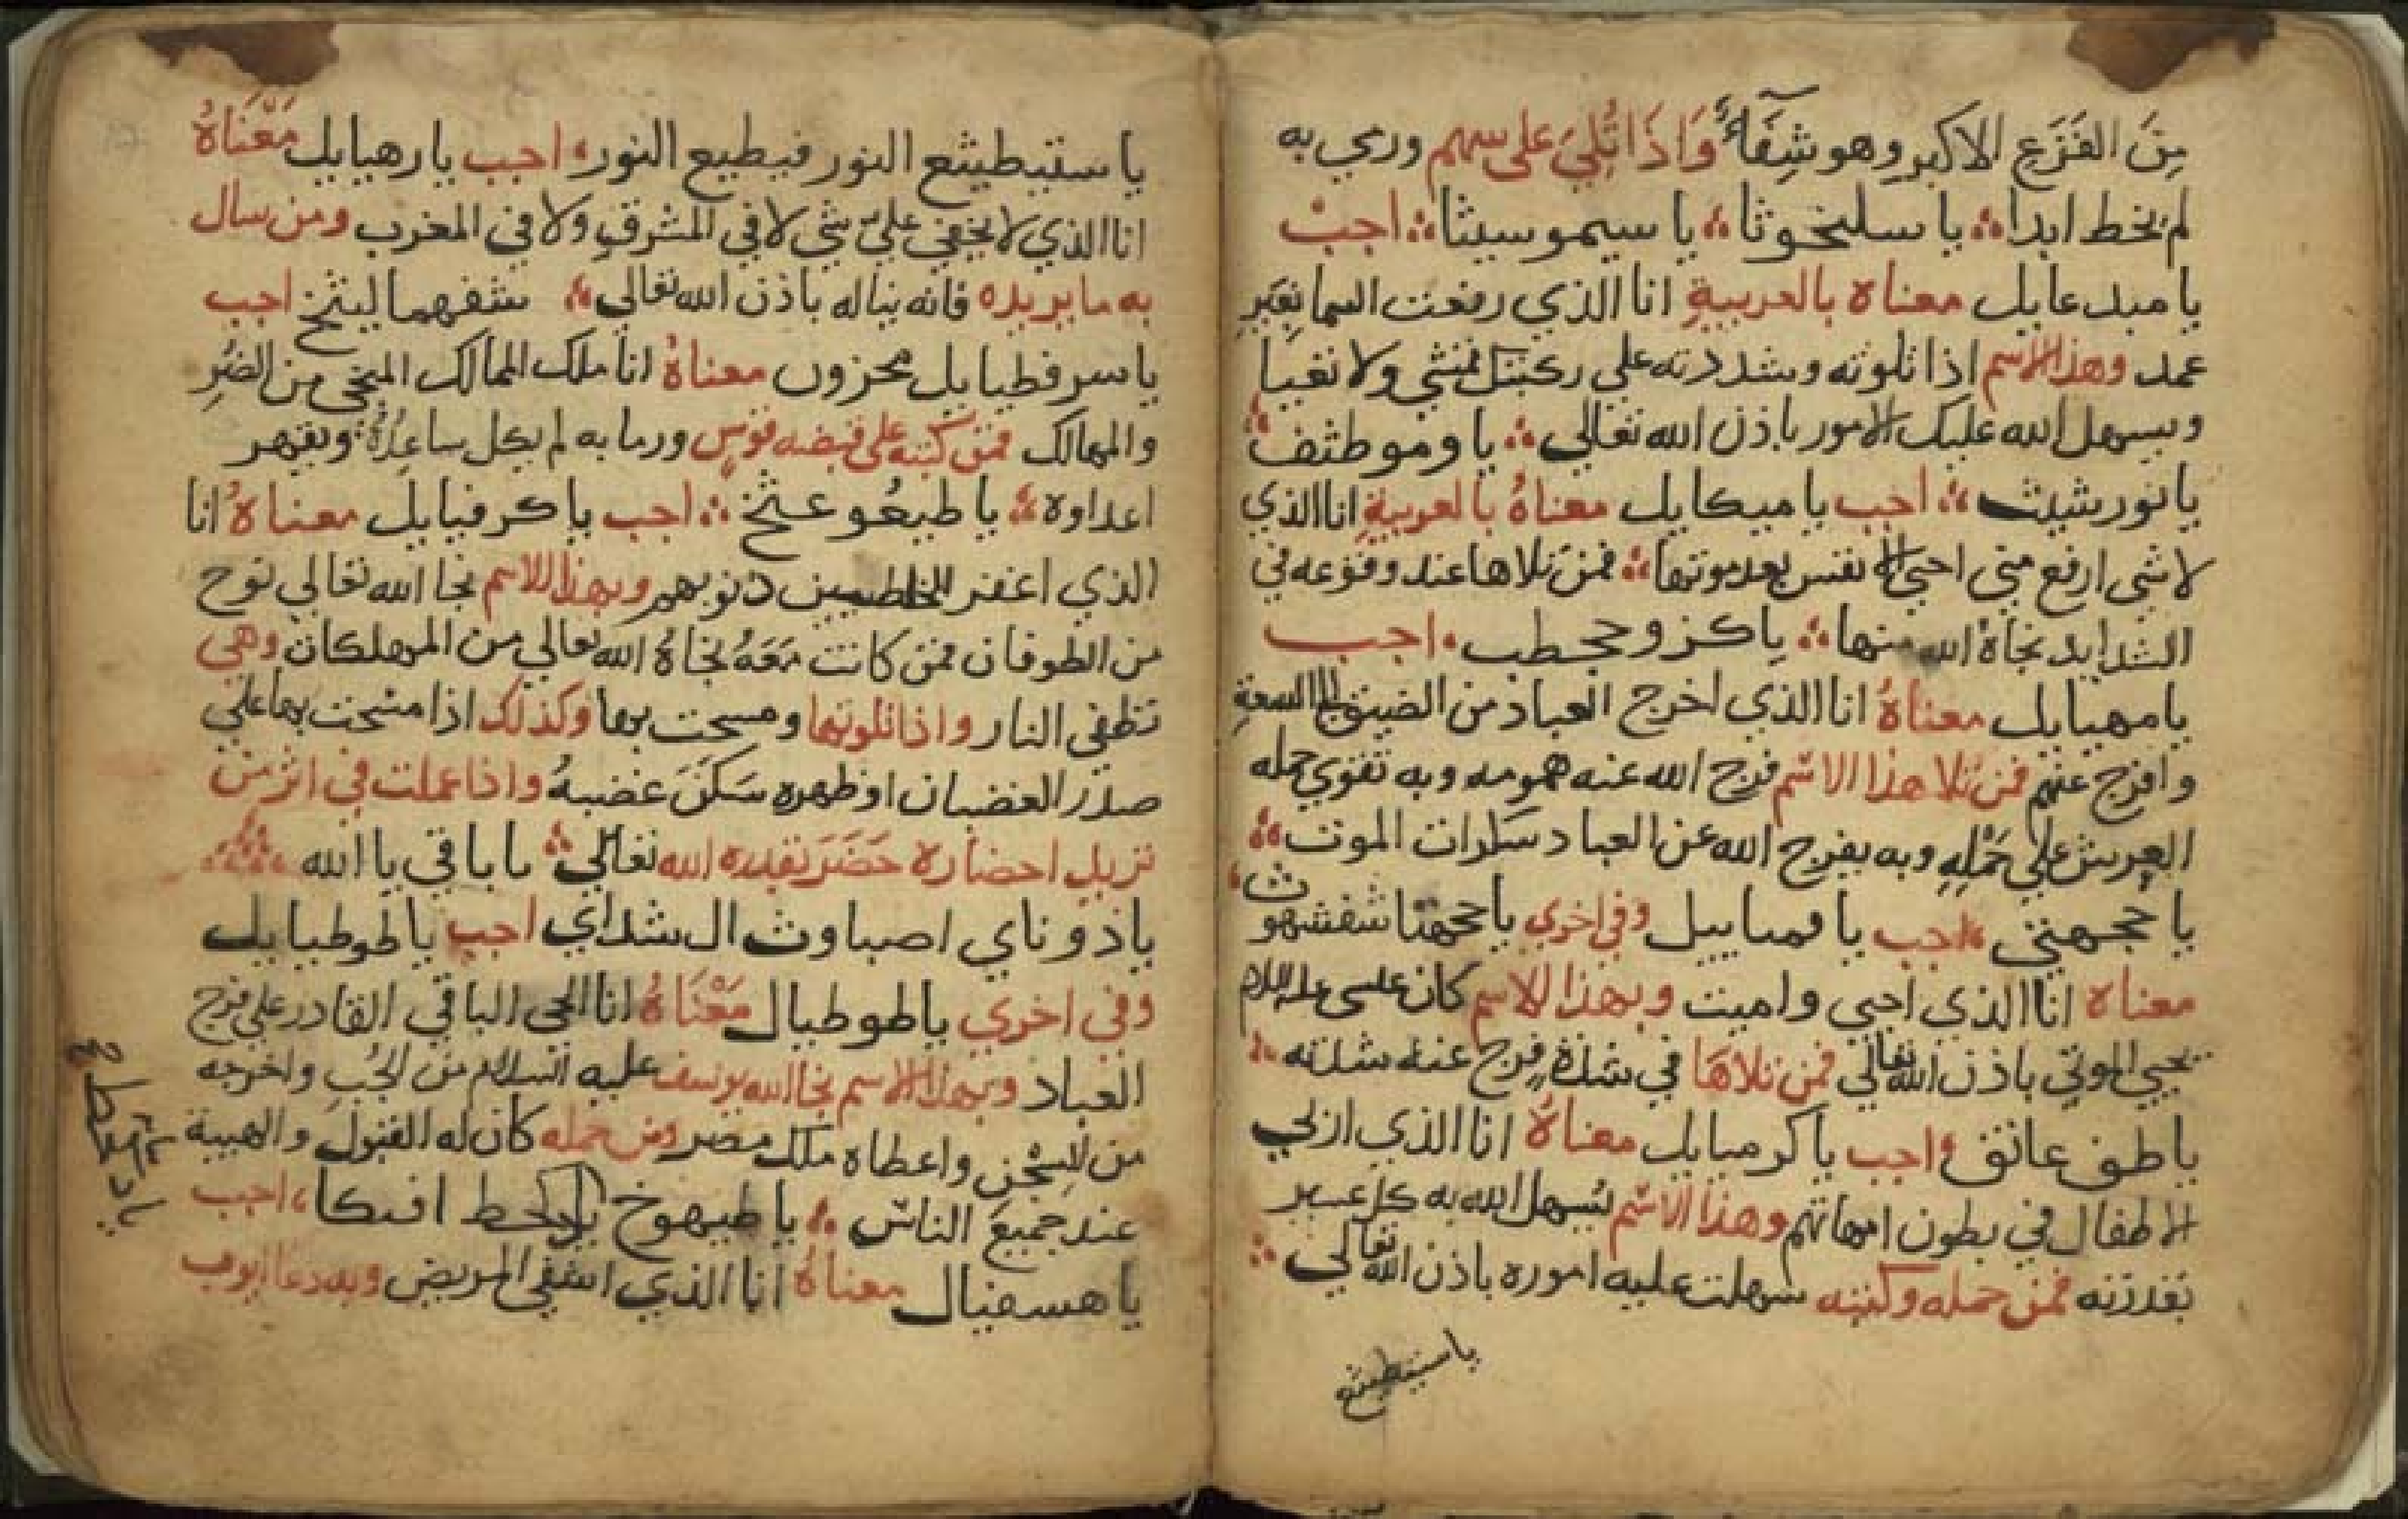 مِنَ الفَزَعِ الاكبر وهو شِفَآءٌ وَاذَا تُلِيَ على سهم ورمي به
لم يخط ابدا يا سلنخوثا يا سيموسيثا اجب
يا ميدعايل معناه بالعربية انا الذي رفعت السما بغير
عمد وهذا الاسم اذا تلوته وشددته على ركبتك تمشي ولا تعيا
ويسهل الله عليك الامور باذن الله تعالي يا وموطثف
يا نورشيث اجب يا ميكايل معناهُ بالعربية انا الذي
لا شي ارفع مني احيي الانفس بعد موتها فمن تلاها عند وقوعه في
الشدايد نجاهُ الله منها يا كزوججطب اجب
يا مهيايل معناهُ انا الذي اخرج العباد من الضيق الى السعة
وافرج عنهم فمن تلا هذا الاسم فرج الله عنه همومه وبه تقوي حمله
العرش علي حَمْلِهِ وبه يفرج الله عن العباد سكرات الموت
يا ججهتني اجب يا وفي اخري يا شفشهوث
معناه انا الذي احيي واميت وبهذا الاسم كان عيسى عليه السلام
يحيي الموتي باذن الله تعالي فمن تلاها في شدة فرج عنه شدته
يا طف عانق اجب يا كرميايل معناهُ انا الذي ازلي
الاطفال في بطون امهاتهم وهذا الاسم يسهل الله به كل عسير
بقدرته فمن حمله وكتبه سهلت عليه اموره باذن الله تعالي
يا ستيطيثع
يا ستيطيثع النور فيطيع النور اجب يا رهيايل مَعْنَاهُ
انا الذي لا يخفي علي شي لا في المشرق ولا في المغرب ومن سال
به ما يريده فانه يناله باذن الله تعالي اجب
يا سرفطيايل محزون معناهُ انا ملك الممالك المنجي من الضر
والمهالك فمن كتبه على قبضه قوس ورما به لم يكل ساعِدُهُ ويقهر
اعداوه يا طيعو عثخ اجب يا كرفيايل معناهُ انا
الذي اغفر للخاطيين ذنوبهم وبهذا الاسم نجا الله تعالي نوح
من الطوفان فمن كانت مَعَهُ نجاهُ الله تعالي من المهلكات وهي
تطفي النار واذا تلوتها ومسحت بها وكذلك اذا مسحت بها علي
صدر الغضبان او ظهره سَكَنَ غضبهُ واذا عملت في اثر من
تريد احضاره حَضَرَ بقدره الله تعالي يا باقي يا الله
يا ذوناي اصباوث ال شداي اجب يا طوطيايل
وفي اخري يا طوطيال مَعْنَاهُ انا الحي الباقي القادر علي فرج
العباد وبهذا الاسم نجا الله يوسف عليه السلام من الجُب واخرجه
من السجن واعطاه ملك مصر ومن حمله كان له القبول والهيبة
عند جميع الناس يا طيهوخ افىكا اجب
يا هسفيال معناهُ انا الذي اشفي المريض وبه دعا ايوب